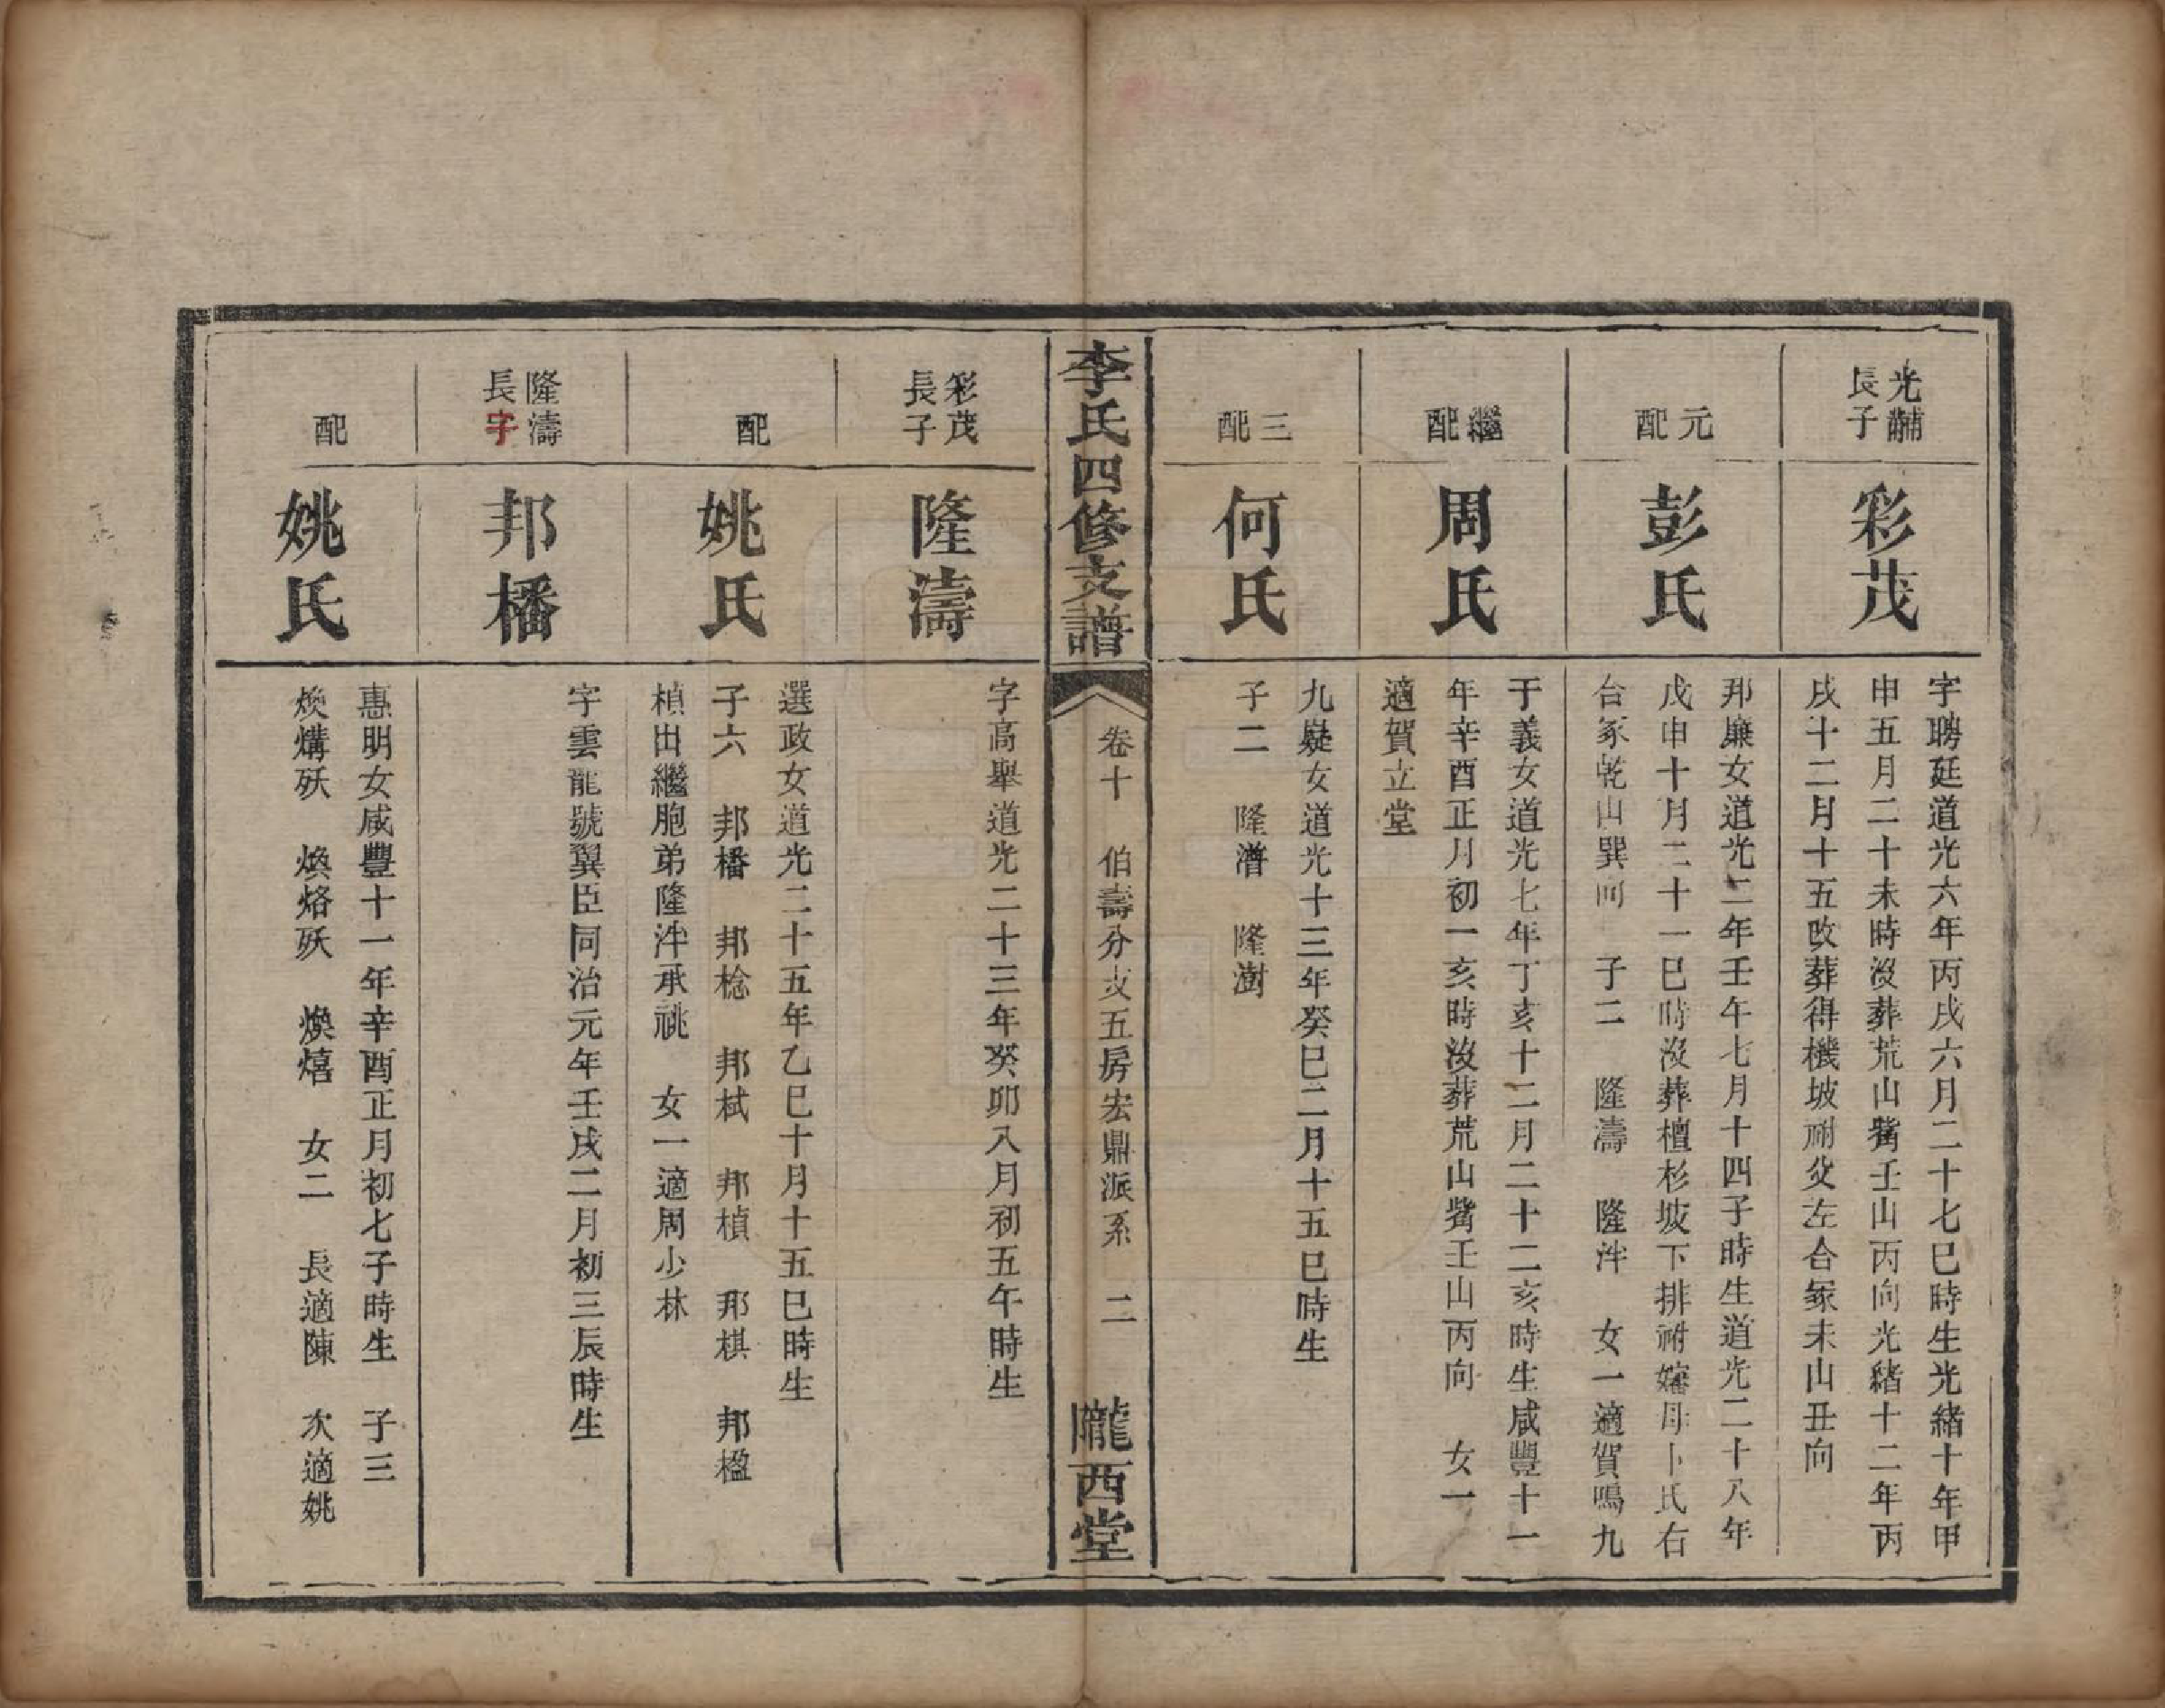 光黼
長子
彩茂
字聘廷道光六年丙戌六月二十七巳時生光緒十年甲
申五月二十未時沒葬荒山觜壬山丙向光緒十二年丙
戌十二月十五改葬得機坡祔父左合冢未山丑向
元配
彭氏
邦廉女道光二年壬午七月十四子時生道光二十八年
戊申十月二十一巳時沒葬檀杉坡下排祔嬸母卜氏右
合冢乾山巽向 子二 隆濤 隆泮 女一適賀鳴九
繼配
周氏
于義女道光七年丁亥十二月二十二亥時生咸豐十一
年辛酉正月初一亥時沒葬荒山觜壬山丙向 女一
適賀立堂
三配
何氏
九嶷女道光十三年癸巳二月十五巳時生
子二 隆濳 隆澍
李氏四修支譜
卷十 伯壽分支五房宏鼎派系 二
隴西堂
彩茂
長子
隆濤
字高舉道光二十三年癸卯八月初五午時生
配
姚氏
選政女道光二十五年乙巳十月十五巳時生
子六 邦橎 邦棯 邦栻 邦楨 邦棋 邦楹
楨出繼胞弟隆泮承祧 女一適周少林
隆濤
長字
邦橎
字雲龍號翼臣同治元年壬戌二月初三辰時生
配
姚氏
惠明女咸豐十一年辛酉正月初七子時生 子三
煥煹殀 煥烙殀 煥熺 女二 長適陳 次適姚